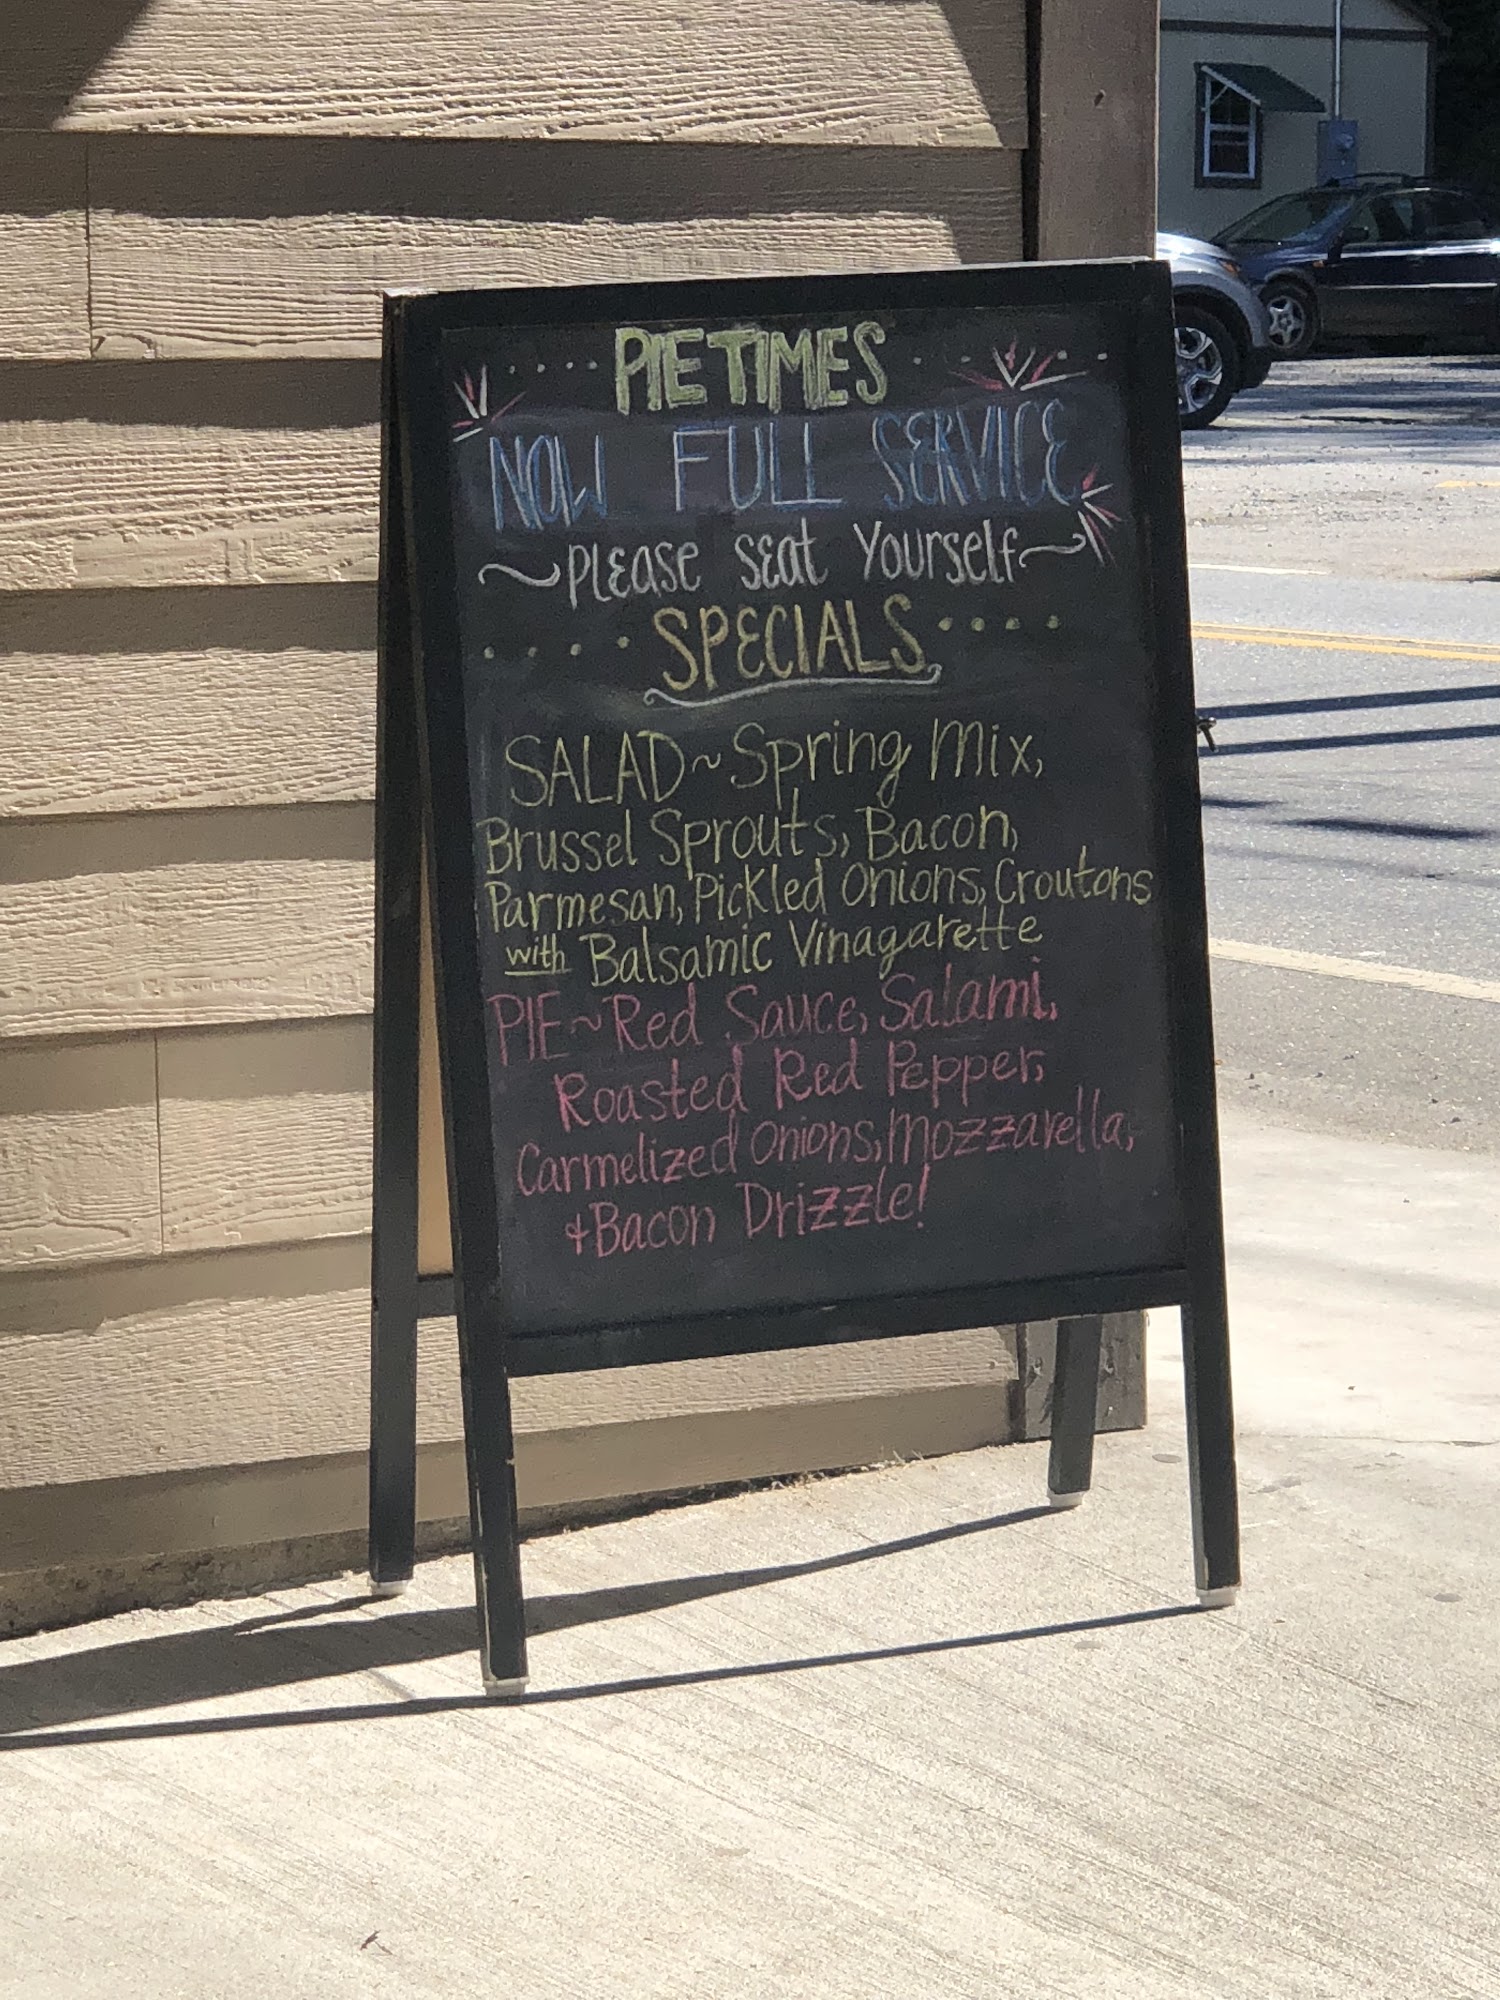 PIE TIMES
NOW FULL SERVICE
~PLEASE SEAT YOURSELF~
SPECIALS
SALAD~Spring Mix,
Brussel Sprouts, Bacon,
Parmesan, Pickled Onions, Croutons
with Balsamic Vinagarette
PIE~Red Sauce, Salami,
Roasted Red Pepper,
Carmelized Onions, Mozzarella,
+Bacon Drizzle!